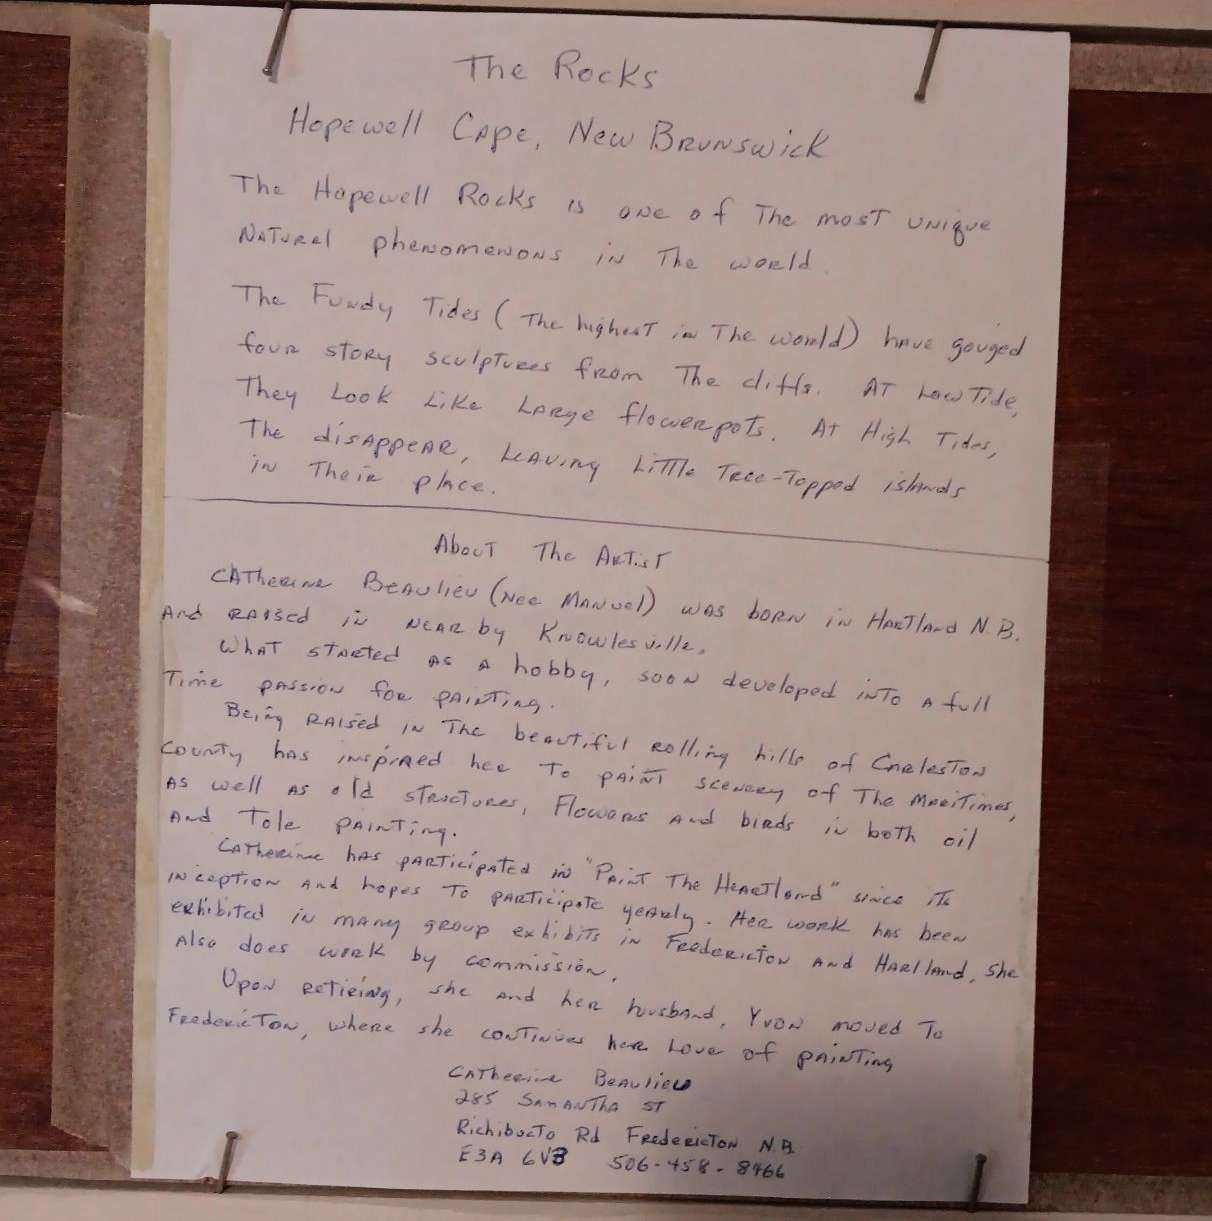 The Rocks
Hopewell Cape, New Brunswick
The Hopewell Rocks is one of The most unique
Natural phenomenons in The world.
The Fundy Tides (The highest in The world) have gouged
four story sculptures from The cliffs. At Low Tide,
They Look Like Large flowerpots. At High Tides,
The disappear, Leaving Little Tree-Topped islands
in Their place.
About The Artist
Catherine Beaulieu (Nee Manuel) was born in Hartland N.B.
And raised in near by Knowlesville.
What started as a hobby, soon developed into a full
Time passion for painting.
Being raised in The beautiful rolling hills of Carleston
County has inspired her To paint scenery of The Maritimes,
As well as old structures, Flowers and birds in both oil
And Tole painting.
Catherine has participated in "Paint The Heartland" since its
inception and hopes To participate yearly. Her work has been
exhibited in many group exhibits in Fredericton and Hartland. She
Also does work by commission.
Upon retiring, she and her husband, Yvon moved To
Fredericton, where she continues her Love of painting
Catherine Beaulieu
285 Samantha St
Richibucto Rd Fredericton N.B.
E3A 6V3 506-458-8466